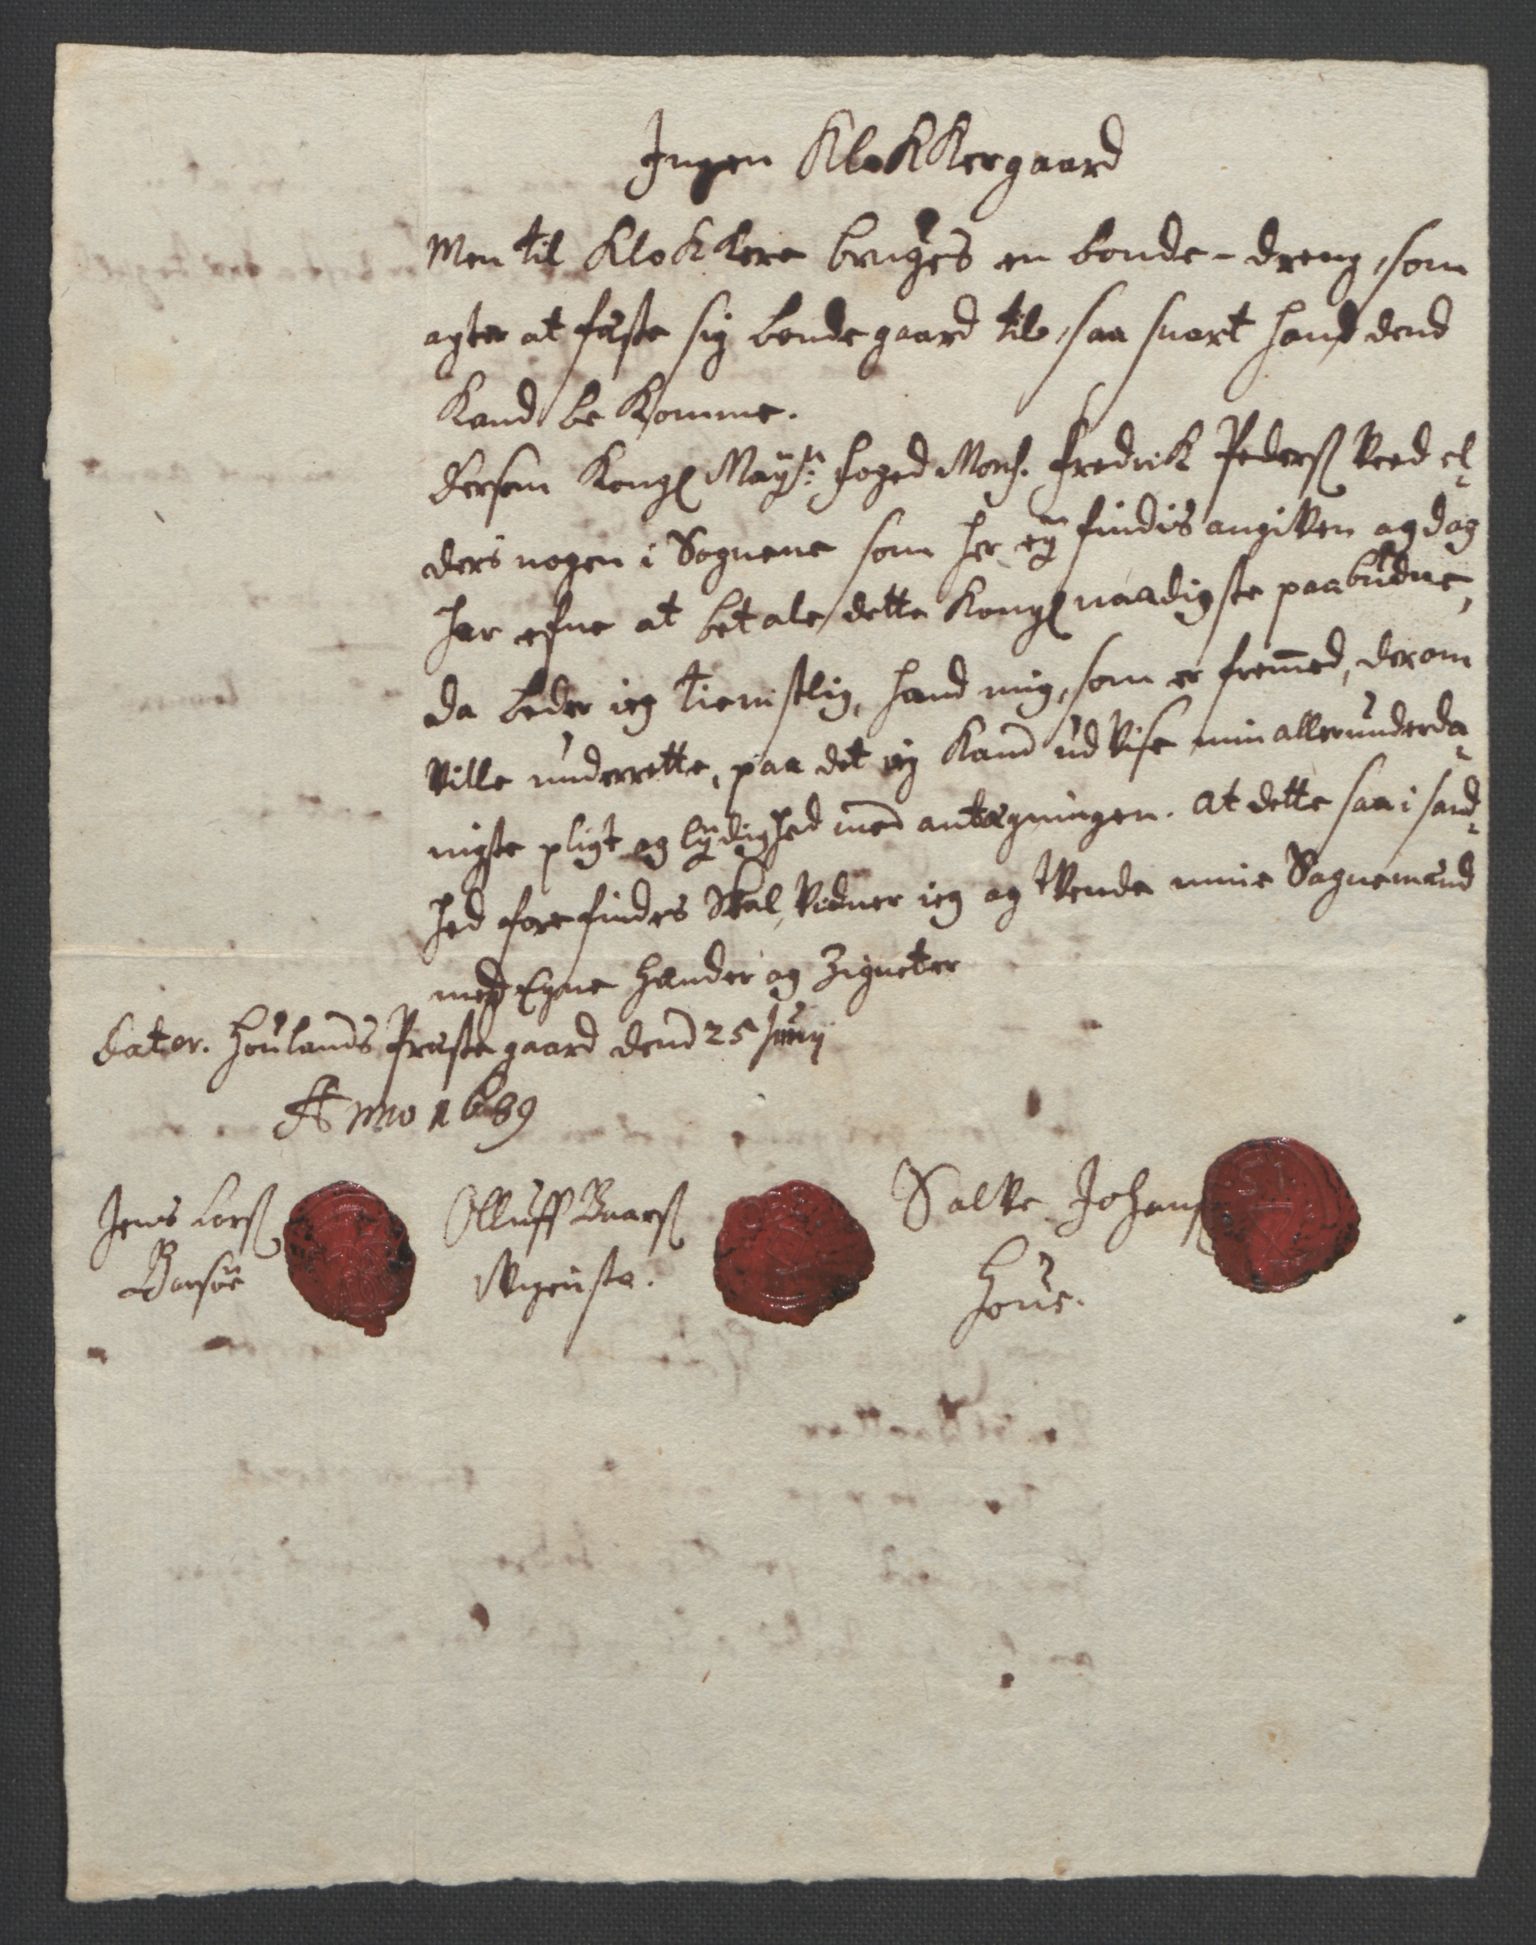 Ingen KlokKergaard
Men til KlokKere bruges en bonde-dreng, som
agter at fæste sig bondegaard til, saa snart hand dend
Kand beKomme.
Dersom Kongl Mayst: foged Mons. Fredrik Pederß Veed el¬
ders nogen i Sognene som her eÿ findis angiven og dog
har efne at betale dette Kongl naadigste paabudne,
da beder ieg tienistlig, hand mig, som er fremed, derom
Ville underrette, paa det ieg Kand udVise min allerunderda¬
nigste pligt og lÿdighed med antegningen. At dette saa i sand¬
hed forefindes Skal, Vidner ieg og tVende mine Sognemænd
med Egne Hænder og Zigneter
Dater. Houlands Præstegaard dend 25 Junij
Anno 1689
Jens Lorß
Olluff Baarß
Salve Johanß
Barsøe
Houe.